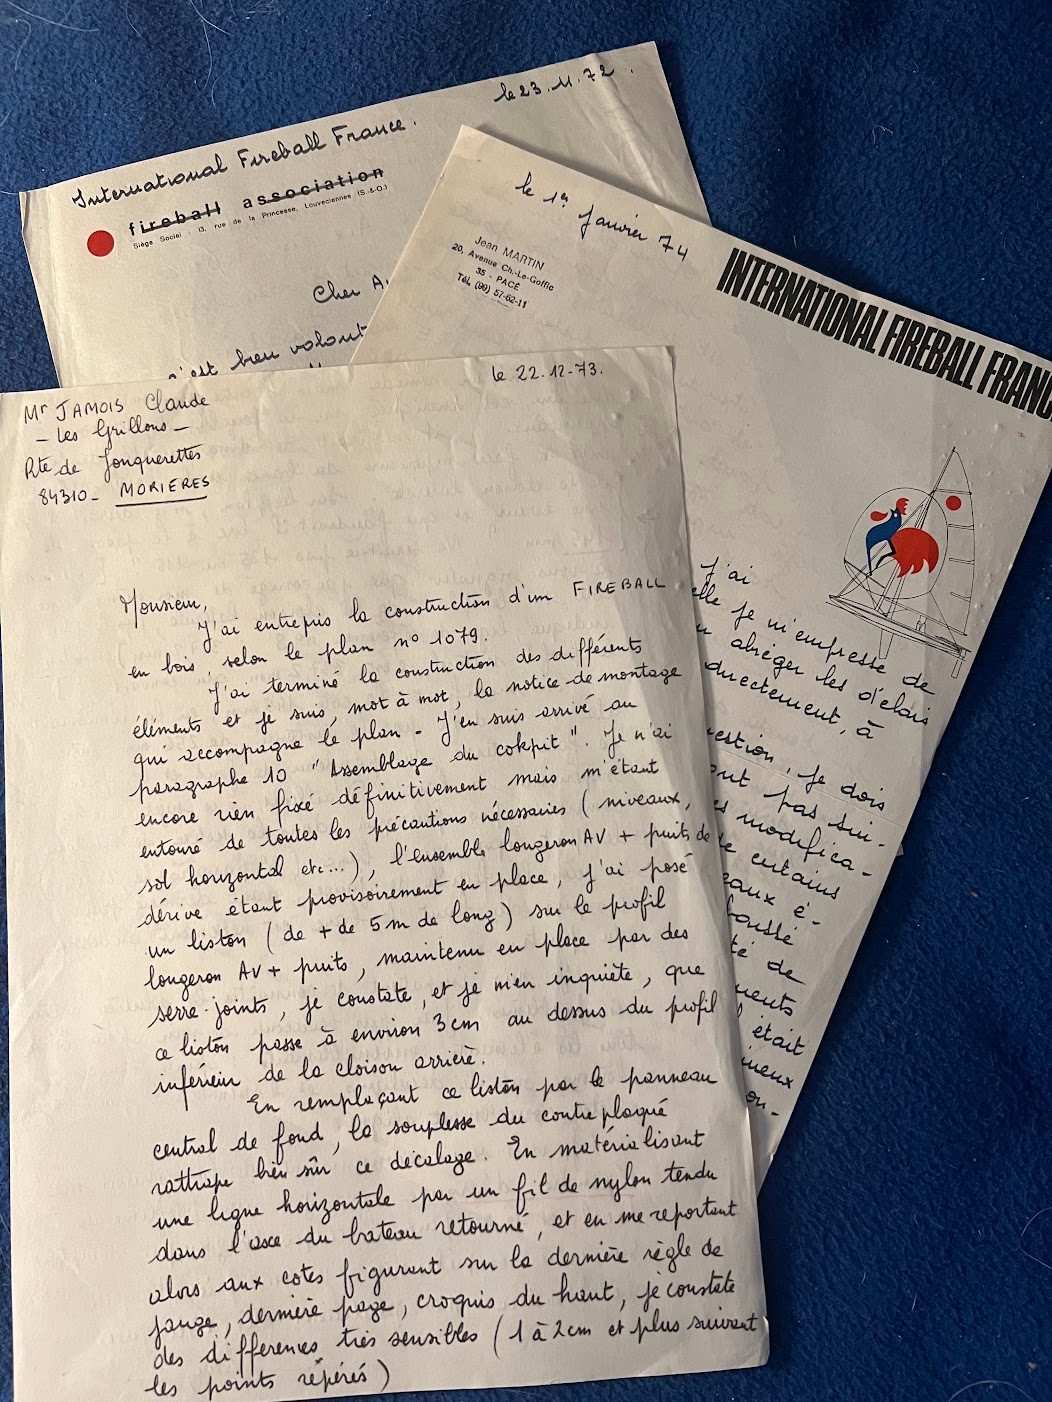 le 23.11.72.
International Fireball France.
fireball association
Siège Social : 13, rue de la Princesse, Louveciennes (S.-&-O.)
Cher A
c'est bien volont
le 1er Janvier 74
Jean MARTIN
20, Avenue Ch.-Le-Goffic
35 - PACÉ
Tél. (99) 57-62-11
INTERNATIONAL FIREBALL FRANC
J'ai
elle je m'empresse de
abréger les délais
directement, à
estion, je dois
ont pas sui-
s modifica-
de certains
eaux é-
oussé
té de
ments
était
ineux
on-
le 22.12-73.
Mr JAMOIS Claude
- Les Grillons -
Rte de Jonquerettes
84310 - MORIERES
Monsieur,
J'ai entrepis la construction d'un FIREBALL
en bois, selon le plan n° 1079.
J'ai terminé la construction des différents
éléments et je suis, mot à mot, la notice de montage
qui accompagne le plan - J'en suis arrivé au
paragraphe 10 "Assemblage du cokpit". Je n'ai
encore rien fixé définitivement mais m'étant
entouré de toutes les précautions nécessaires (niveaux,
sol horizontal etc...), l'ensemble longeron AV + puits de
dérive étant provisoirement en place, j'ai posé
un liston (de + de 5m de long) sur le profil
longeron AV + puits, maintenu en place par des
serre-joints, je constate, et je m'en inquiète, que
ce liston passe à environ 3cm au dessus du profil
inférieur de la cloison arrière.
En remplaçant ce liston par le panneau
central de fond, la souplesse du contreplaqué
rattrape bien sûr ce décalage. En matérialisant
une ligne horizontale par un fil de nylon tendu
dans l'axe du bateau retourné, et en me reportant
alors aux cotes figurant sur la dernière règle de
jauge, dernière page, croquis du haut, je constate
des différences très sensibles (1 à 2cm et plus suivant
les points répérés)